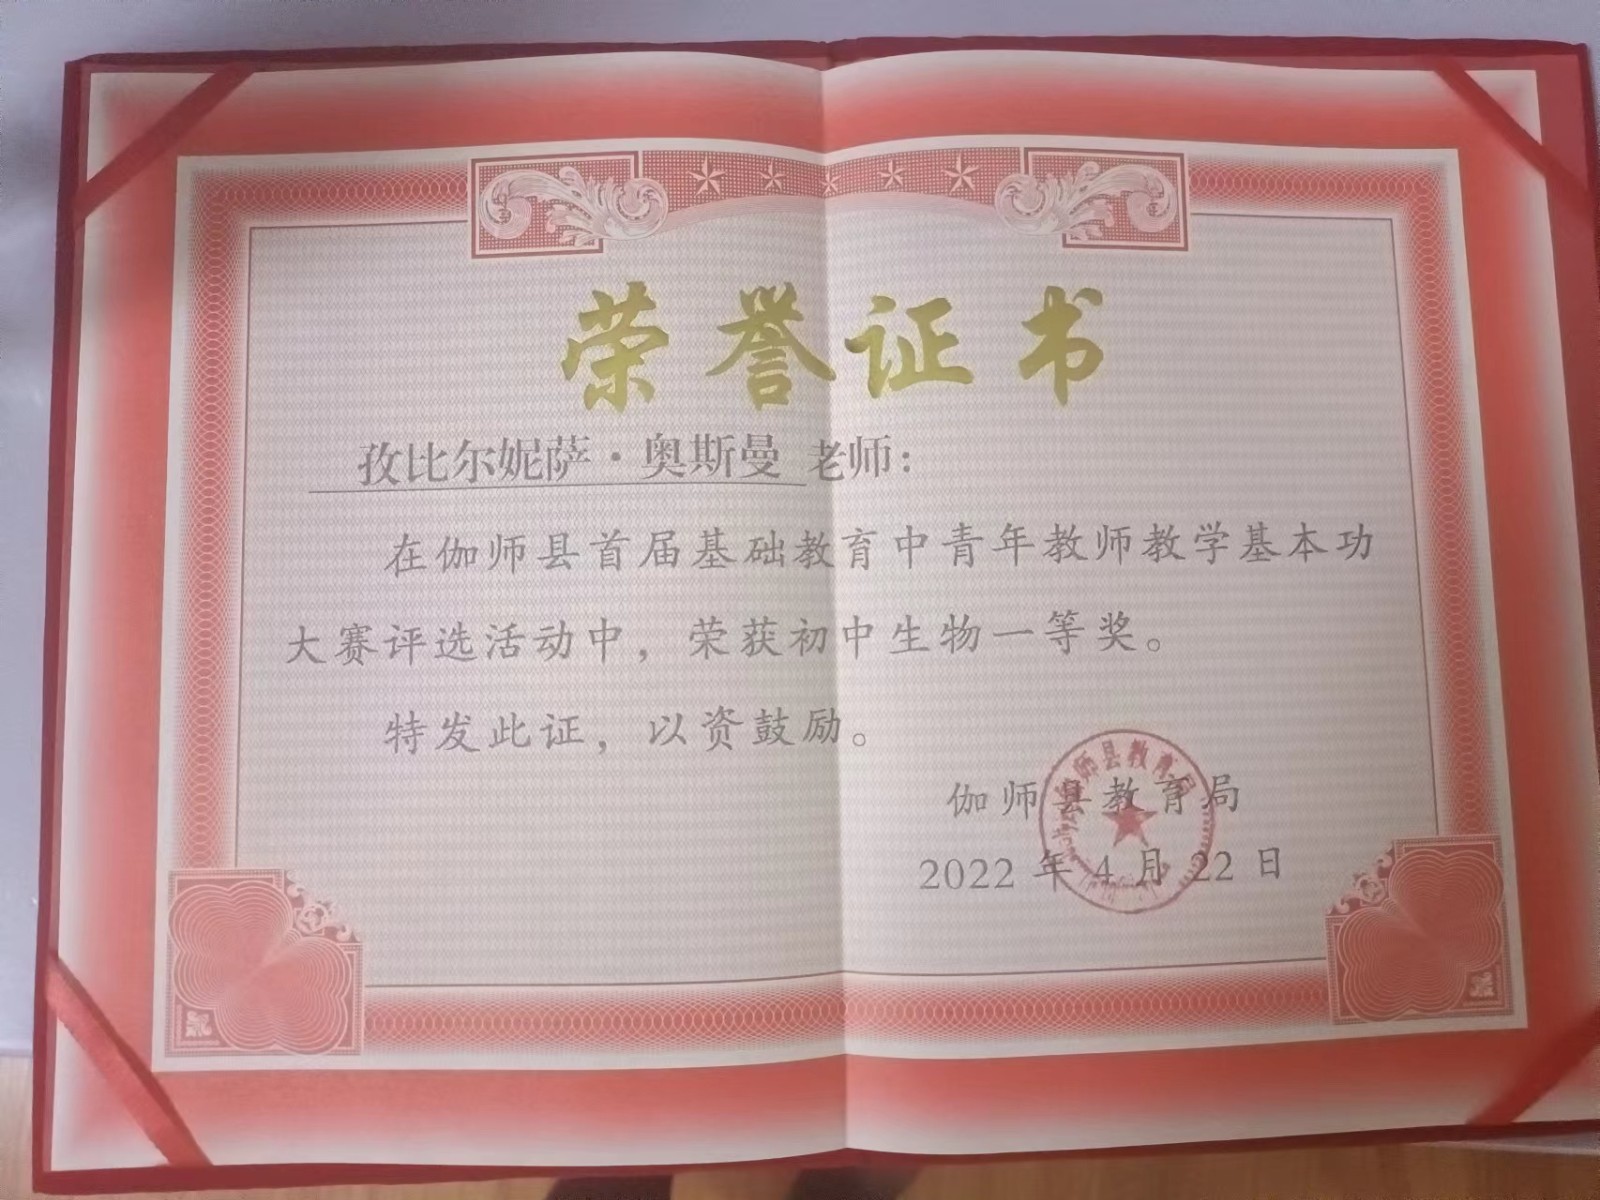 荣誉证书
孜比尔妮萨·奥斯曼 老师：
在伽师县首届基础教育中青年教师教学基本功
大赛评选活动中，荣获初中生物一等奖。
特发此证，以资鼓励。
伽师县教育局
2022年4月22日
伽师县教育局